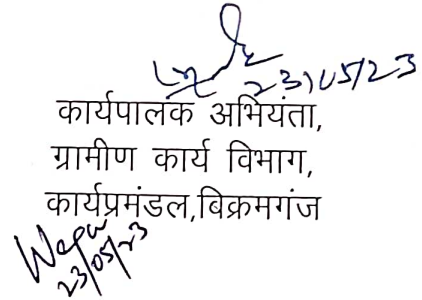 23/05/23
कार्यपालक अभियंता,
ग्रामीण कार्य विभाग,
कार्यप्रमंडल,बिक्रमगंज
23/05/23